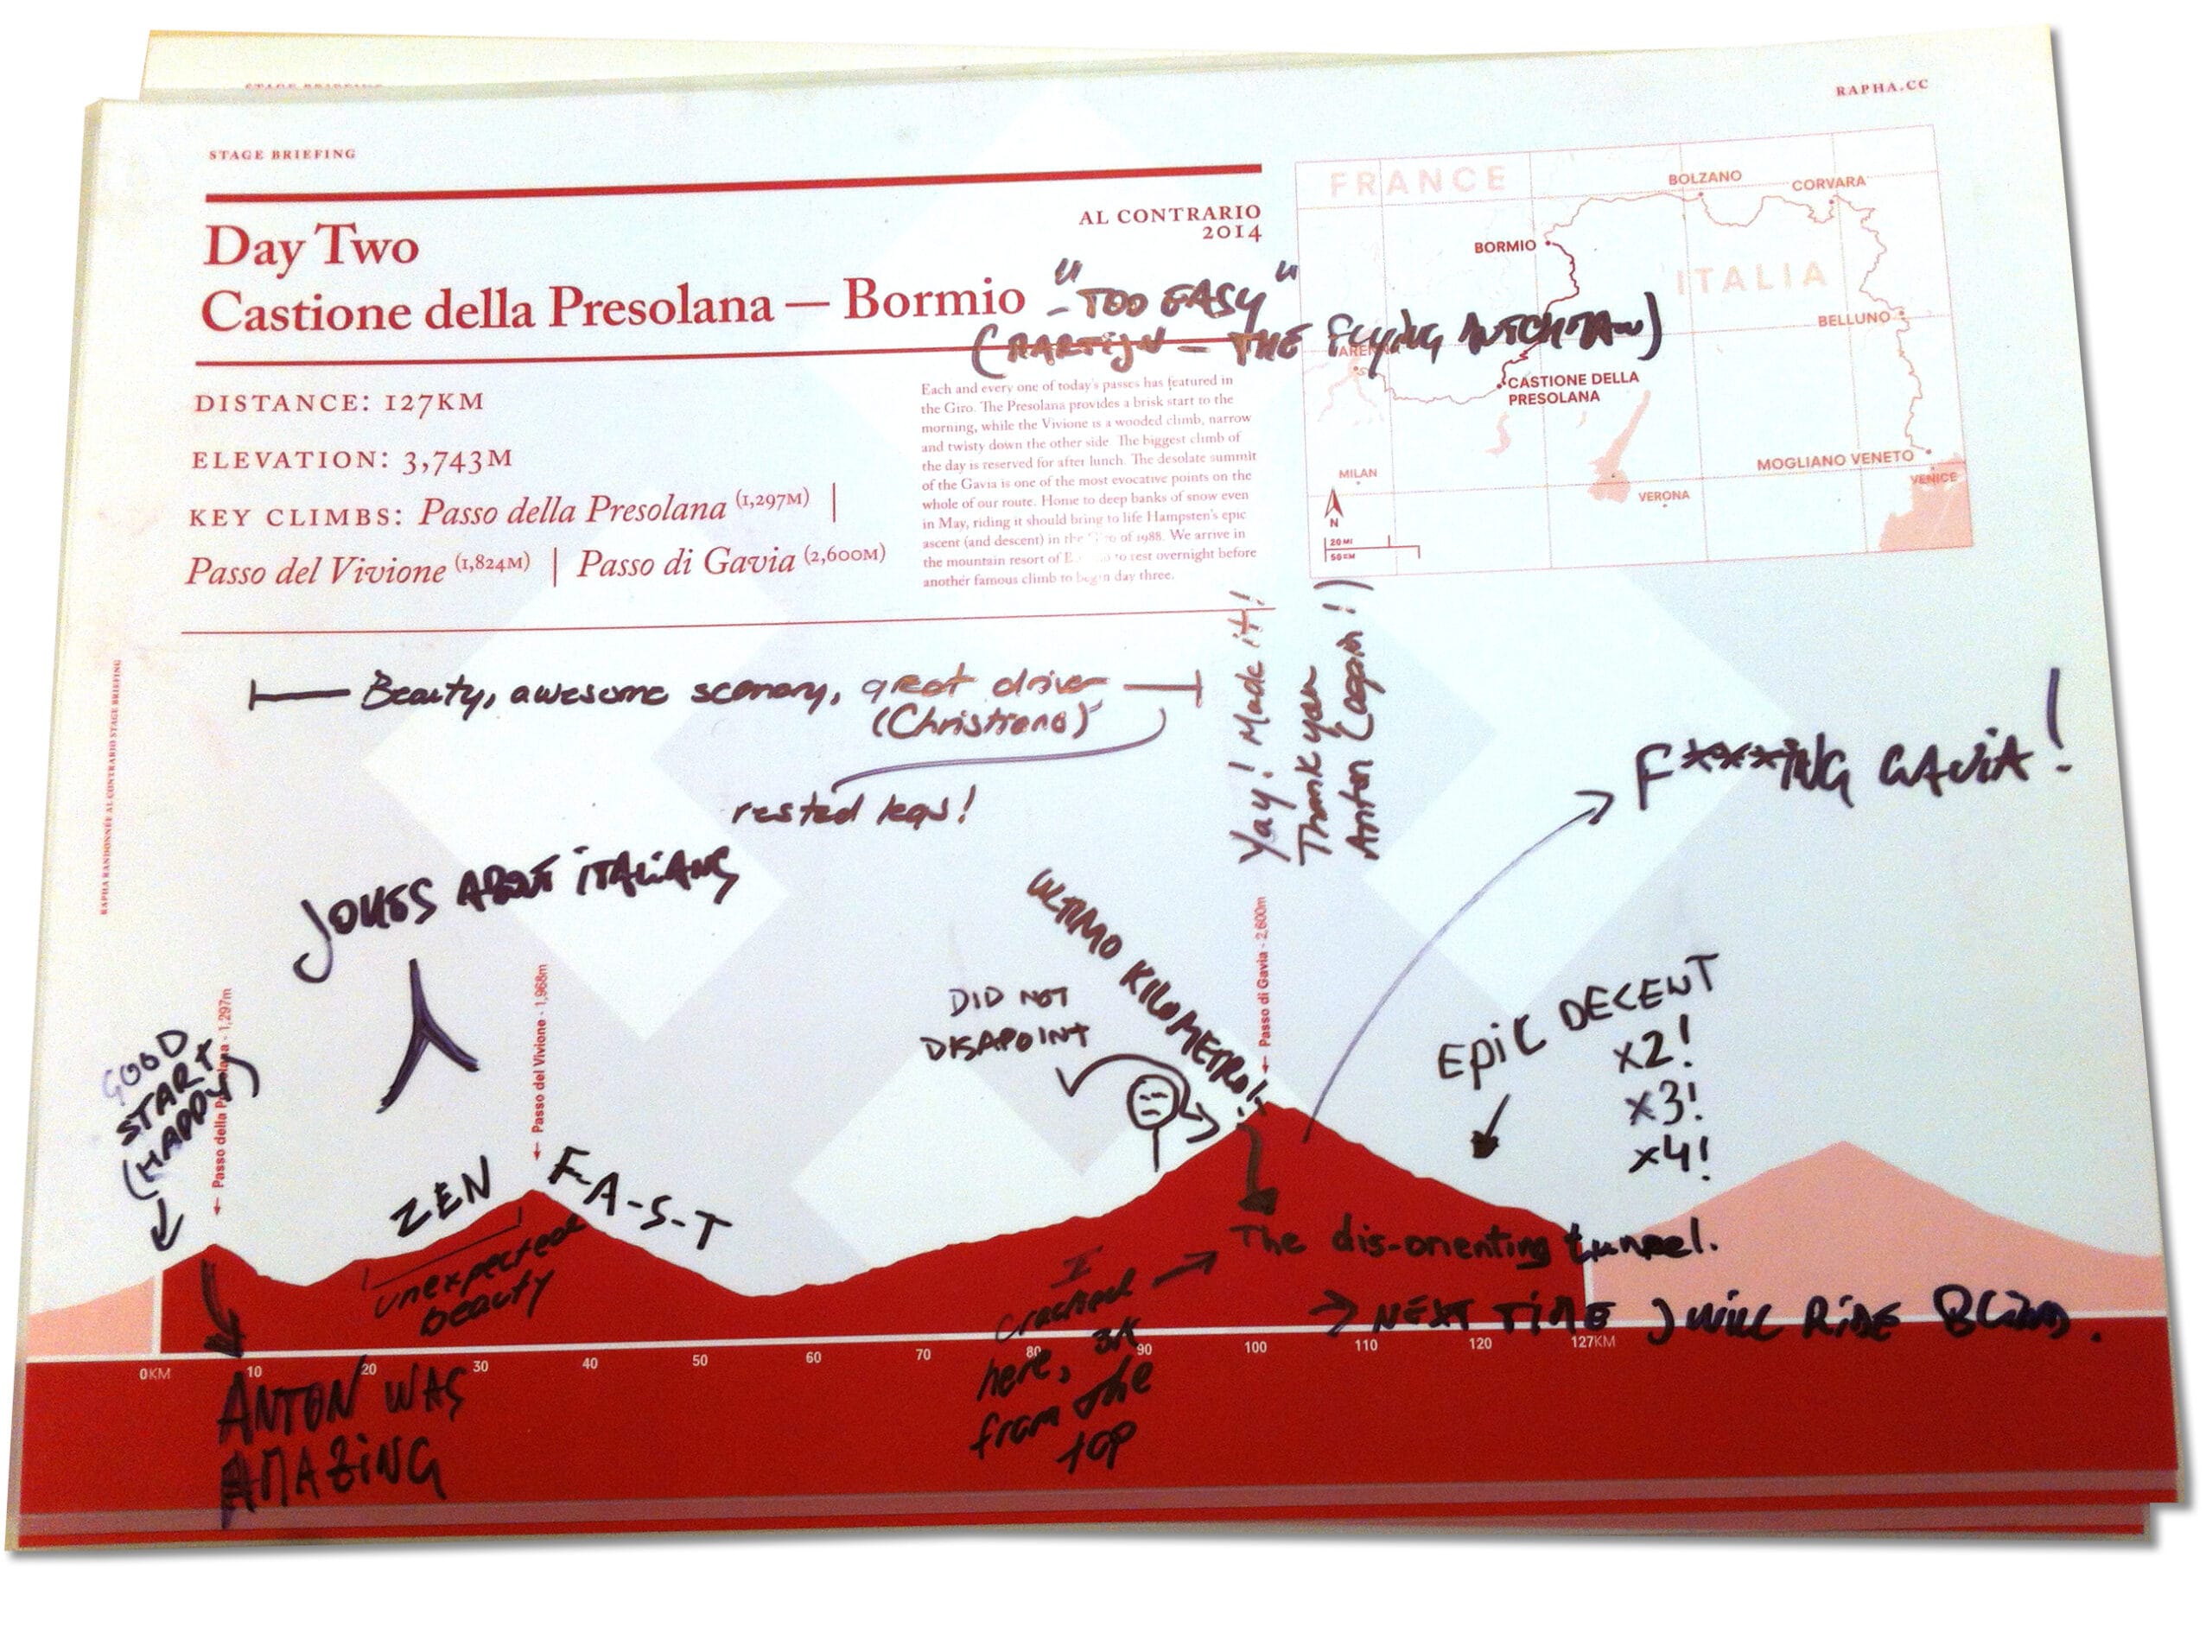 STAGE BRIEFING
RAPHA.CC
STAGE BRIEFING
Day Two
Castione della Presolana — Bormio
AL CONTRARIO
2014
"TOO EASY"
(MARTIJN – THE FLYING DUTCHMAN)
DISTANCE: 127KM
ELEVATION: 3,743M
KEY CLIMBS: Passo della Presolana (1,297M) |
Passo del Vivione (1,824M) | Passo di Gavia (2,600M)
Each and every one of today's passes has featured in
the Giro. The Presolana provides a brisk start to the
morning, while the Vivione is a wooded climb, narrow
and twisty down the other side. The biggest climb of
the day is reserved for after lunch. The desolate summit
of the Gavia is one of the most evocative points on the
whole of our route. Home to deep banks of snow even
in May, riding it should bring to life Hampsten's epic
ascent (and descent) in the of 1988. We arrive in
the mountain resort of to rest overnight before
another famous climb to begin day three.
FRANCE
ITALIA
BOLZANO
CORVARA
BORMIO
BELLUNO
CASTIONE DELLA
PRESOLANA
MILAN
VERONA
MOGLIANO VENETO
VENICE
N
20 MI
50 KM
RAPHA RANDONNÉE AL CONTRARIO STAGE BRIEFING
Beauty, awesome scenery, great driver
(Christiano)
rested legs!
Yay! Made it!
Thank you
Anton (again!)
F***ING GAVIA!
JOKES ABOUT ITALIANS
GOOD
START
(HAPPY)
Passo della Presolana - 1,297m
Passo del Vivione - 1,968m
Passo di Gavia - 2,600m
ZEN
F-A-S-T
unexpected
beauty
DID NOT
DISAPOINT
ULTIMO KILOMETRO!!
EPIC DECENT
x2!
x3!
x4!
The dis-orienting tunnel.
→ NEXT TIME I WILL RIDE BLIND.
I
cracked
here, 3K
from the
top
0KM 10 20 30 40 50 60 70 80 90 100 110 120 127KM
ANTON WAS
AMAZING